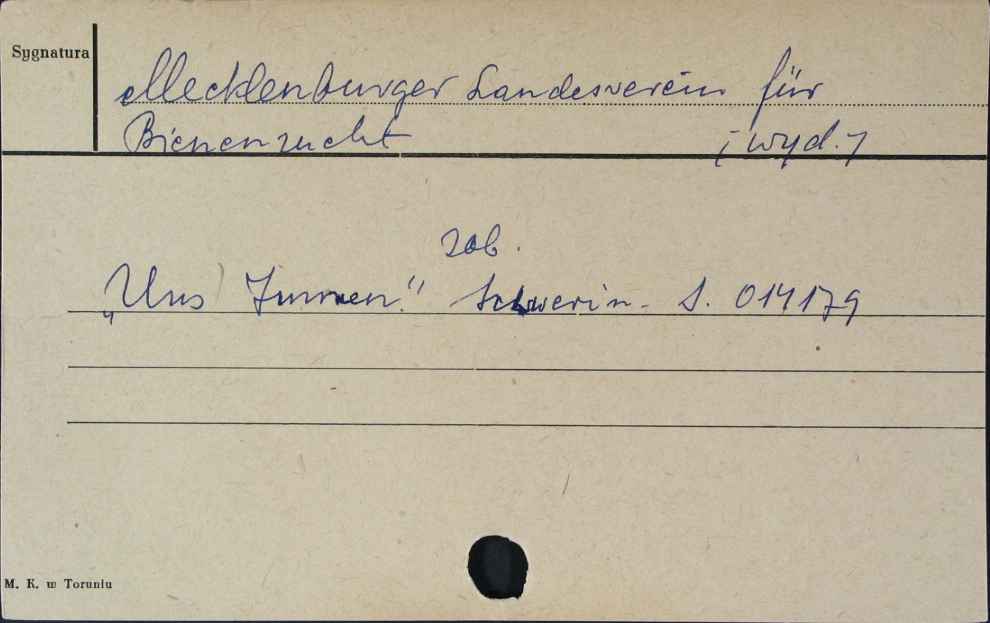 Sygnatura
Mecklenburger Landesverein für
Bienenzucht (wyd.)
zob.
„Uns Immen." Schwerin. S. 014179
M. K. w Toruniu